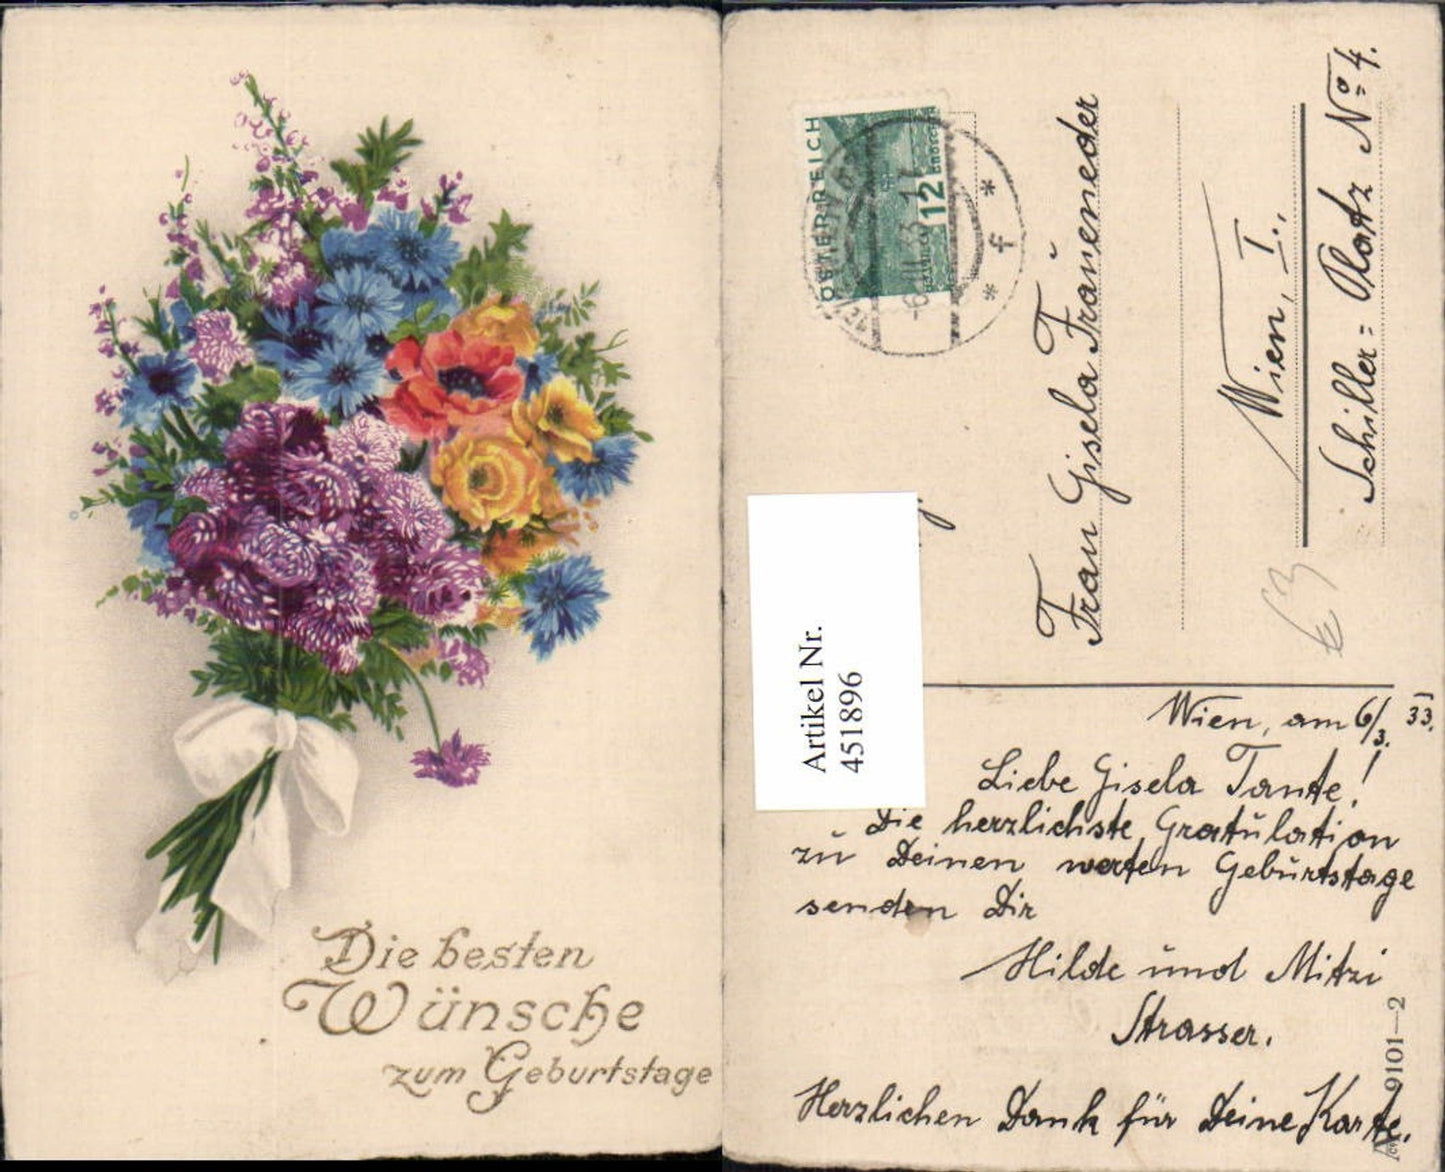 Die besten
Wünsche
zum Geburtstage
ÖSTERREICH
12
GROSCHEN
-6.III.33.17
* f *
Frau Gisela Fraueneder
Wien, I.,
Schiller= Platz No 4.
Artikel Nr.
451896
Wien, am 6/3. 33.
Liebe Gisela Tante!
Die herzlichste Gratulation
zu Deinen werten Geburtstage
senden Dir
Hilde und Mitzi
Strasser.
Herzlichen Dank für Deine Karte.
9101—2